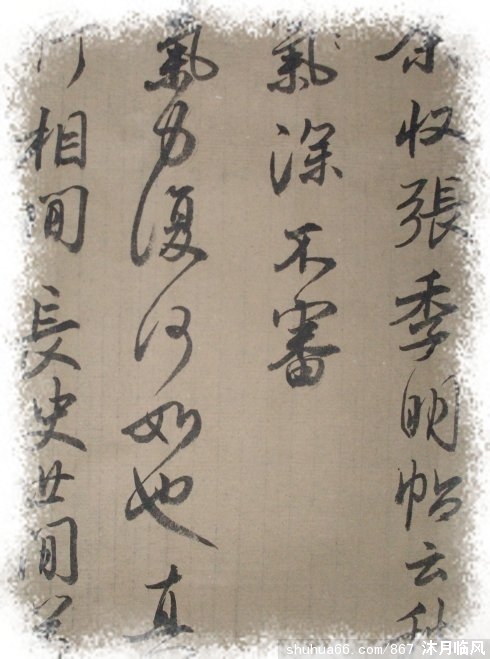 余收張季明帖云秋
氣深不審
氣力復何如也真
行相間 長史世間第
shuhua66.com/867 沐月临风